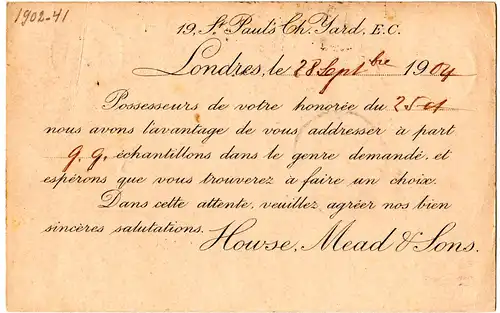 1902-41
19, St. Paul's Ch. Yard, E.C.
Londres, le 28 Septbre 1904
Possesseurs de votre honorée du 25 ct
nous avons l'avantage de vous addresser à part
q.q. échantillons dans le genre demandé, et
espérons que vous trouverez à faire un choix.
Dans cette attente, veuillez agréer nos bien
sincères salutations.
Howse, Mead & Sons.